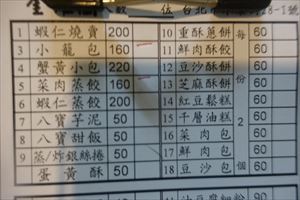 數 位 台北市
1 蝦仁燒賣 200
3 小籠包 160
4 蟹黃小包 220
5 菜肉蒸餃 160
6 蝦仁蒸餃 200
7 八寶芋泥 50
8 八寶甜飯 50
9 蒸/炸銀絲捲 50
蛋黃酥 50
10 重酥蔥餅 60
11 鮮肉酥餃 60
12 豆沙酥餅 60
13 芝麻酥餅 60
14 紅豆鬆糕 60
15 千層油糕 60
16 菜肉包 60
17 鮮肉包 60
18 豆沙包 60
每份2個